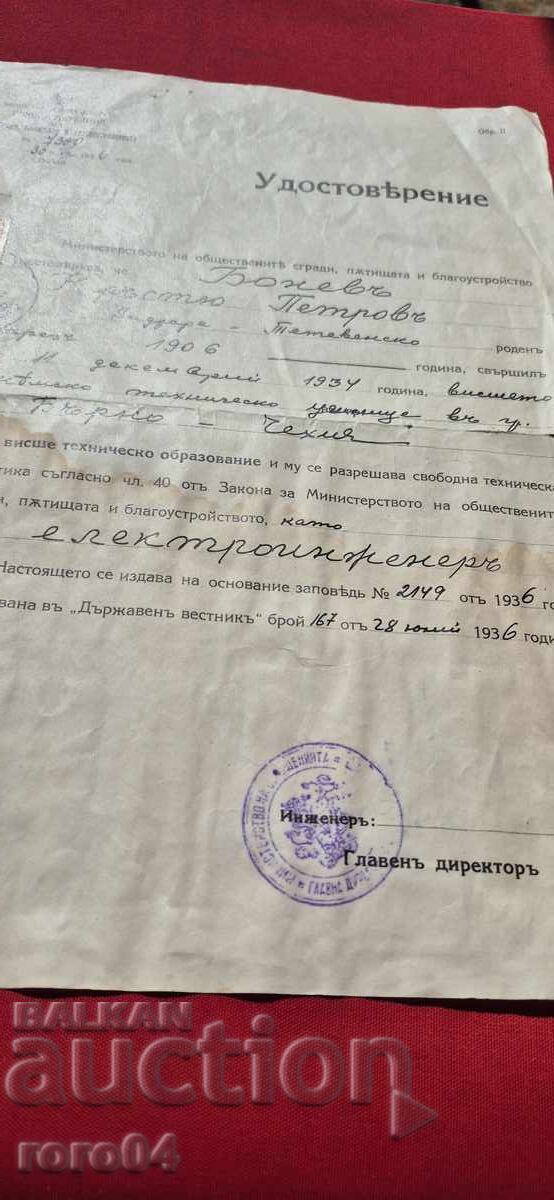 Обр. II
Удостовѣрение
Министерството на обществените сгради, пѫтищата и благоустройство
че Боневъ
Петровъ
- Тетевенско роденъ
1906 година, свършилъ
11 декемврий 1934 година, висшето
техническо училище въ гр.
Бърно - Чехия.
висше техническо образование и му се разрешава свободна техническа
тика съгласно чл. 40 отъ Закона за Министерството на общественитѣ
и, пѫтищата и благоустройството, като
електроинженеръ
Настоящето се издава на основание заповѣдь № 2149 отъ 1936 го
вана въ „Държавенъ вестникъ“ брой 167 отъ 28 юлий 1936 годи
Инженеръ:
Главенъ директоръ
BALKAN
auction
roro04